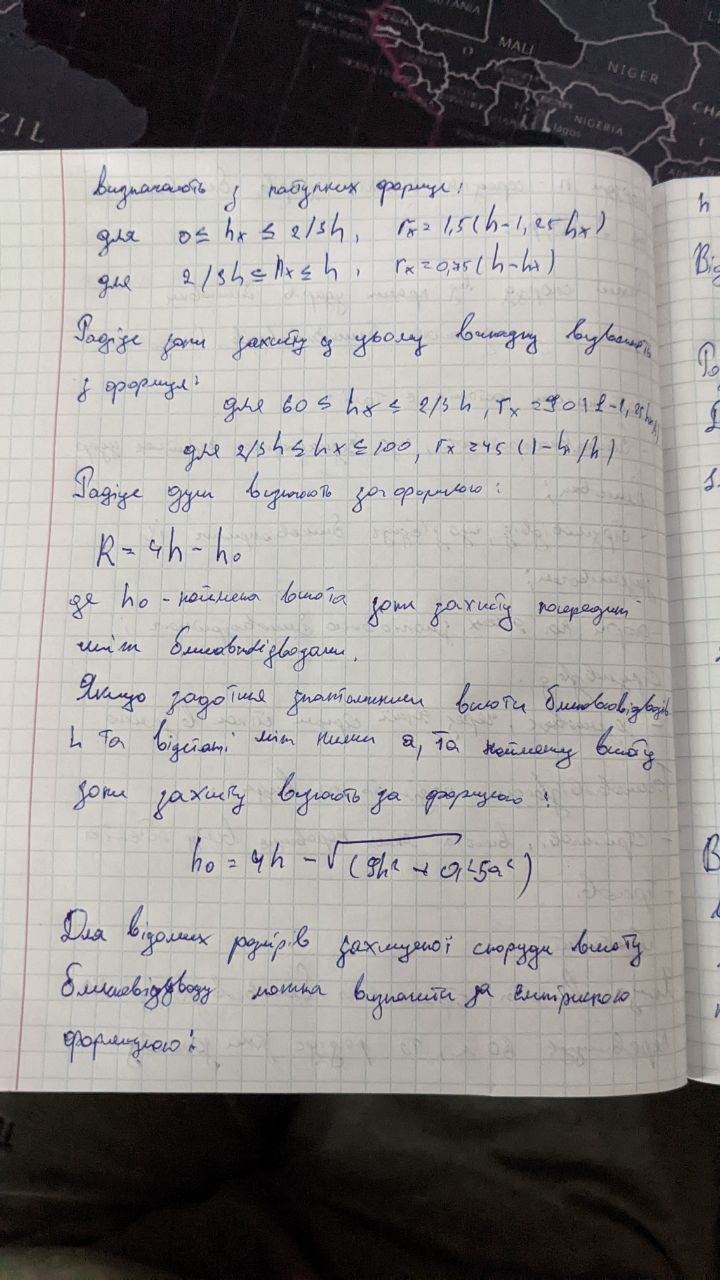 TANIA
MALI
NIGER
CHA
NIGERIA
Lagos
ZIL
визначають з наступних формул:
для 0 ≤ hx ≤ 2/3h, rx = 1,5(h-1,25hx)
для 2/3h ≤ hx ≤ h, rx = 0,75(h-hx)
Радіус зони захисту у цьому випадку
з формул:
для 60 ≤ hx ≤ 2/3h, rx = 90(1-1,25hx/h)
для 2/3h ≤ hx ≤ 100, rx = 45(1-hx/h)
Радіус дуги визначають за формулою:
R = 4h - h₀
де h₀ - найменша висота зони захисту посередині
між блискавковідводами.
Якщо висоти блискавковідводів
h та відстані між ними a, та найменшу висоту
зони захисту за формулою:
h₀ = 4h - √(9h² + 0,25a²)
Для відомих розмірів захищеної споруди висоту
блискавковідводу можна визначити за емпіричною
формулою:
h
Від
В